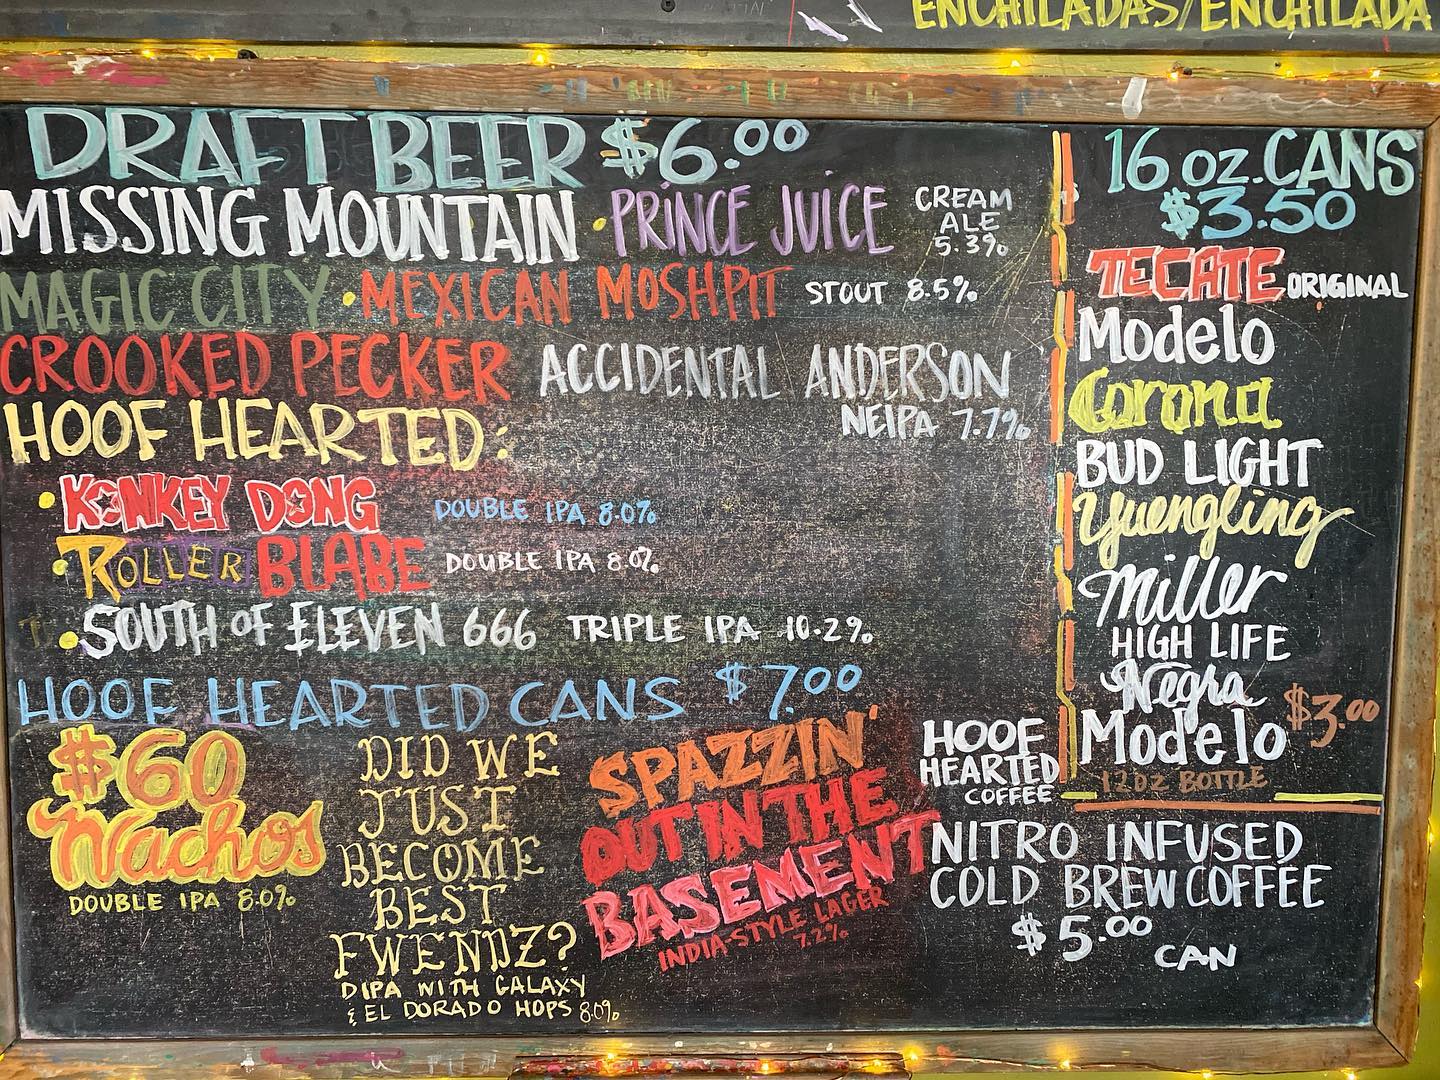 ENCHILADAS/ENCHILADA
DRAFT BEER $6.00
MISSING MOUNTAIN • PRINCE JUICE CREAM ALE 5.3%
MAGIC CITY • MEXICAN MOSHPIT STOUT 8.5%
CROOKED PECKER ACCIDENTAL ANDERSON
NEIPA 7.7%
HOOF HEARTED:
• KONKEY DONG DOUBLE IPA 8.0%
• ROLLER BLABE DOUBLE IPA 8.0%
• SOUTH OF ELEVEN 666 TRIPLE IPA 10.2%
HOOF HEARTED CANS $7.00
$60
Nachos
DOUBLE IPA 8.0%
DID WE
JUST
BECOME
BEST
FWENDZ?
DIPA WITH GALAXY
& EL DORADO HOPS 8.0%
SPAZZIN'
OUT IN THE
BASEMENT
INDIA-STYLE LAGER
7.2%
16 oz. CANS
$3.50
TECATE ORIGINAL
Modelo
Corona
BUD LIGHT
Yuengling
Miller
HIGH LIFE
Negra
Modelo $3.00
12OZ BOTTLE
HOOF
HEARTED
COFFEE
NITRO INFUSED
COLD BREW COFFEE
$5.00
CAN